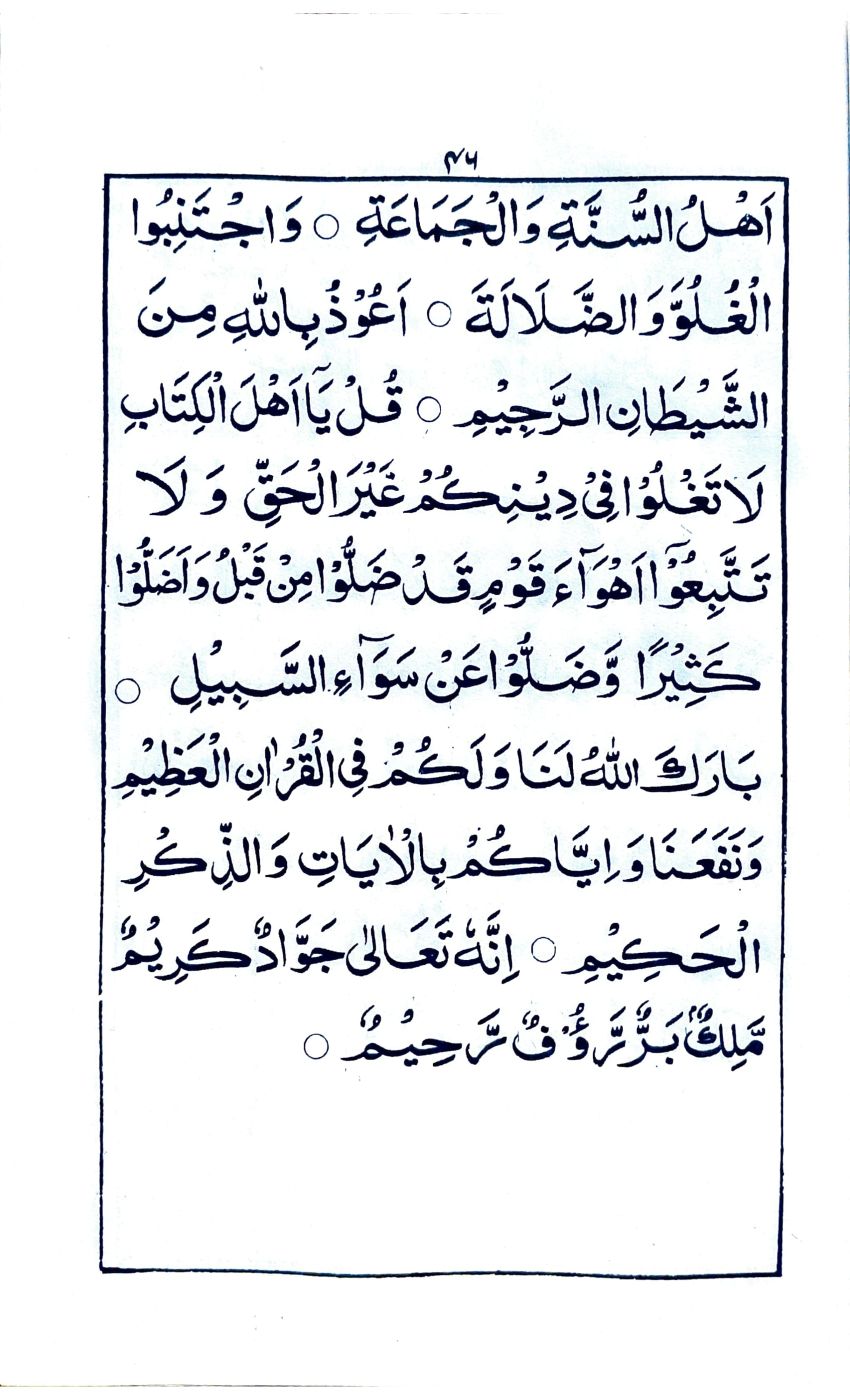 ۴۶
اَهْلُ السُّنَّةِ وَالْجَمَاعَةِ ○ وَاجْتَنِبُوا
الْغُلُوَّ وَالضَّلَالَةَ ○ اَعُوْذُ بِاللّٰهِ مِنَ
الشَّيْطَانِ الرَّجِيْمِ ○ قُلْ يَآ اَهْلَ الْكِتَابِ
لَا تَغْلُوْا فِيْ دِيْنِكُمْ غَيْرَ الْحَقِّ وَلَا
تَتَّبِعُوْٓا اَهْوَآءَ قَوْمٍ قَدْ ضَلُّوْا مِنْ قَبْلُ وَاَضَلُّوْا
كَثِيْرًا وَّضَلُّوْا عَنْ سَوَآءِ السَّبِيْلِ ○
بَارَكَ اللّٰهُ لَنَا وَلَكُمْ فِي الْقُرْاٰنِ الْعَظِيْمِ
وَنَفَعَنَا وَاِيَّاكُمْ بِالْاٰيَاتِ وَالذِّكْرِ
الْحَكِيْمِ ○ اِنَّهٗ تَعَالٰى جَوَّادٌ كَرِيْمٌ
مَّلِكٌ بَرٌّ رَّؤُفٌ رَّحِيْمٌ ○